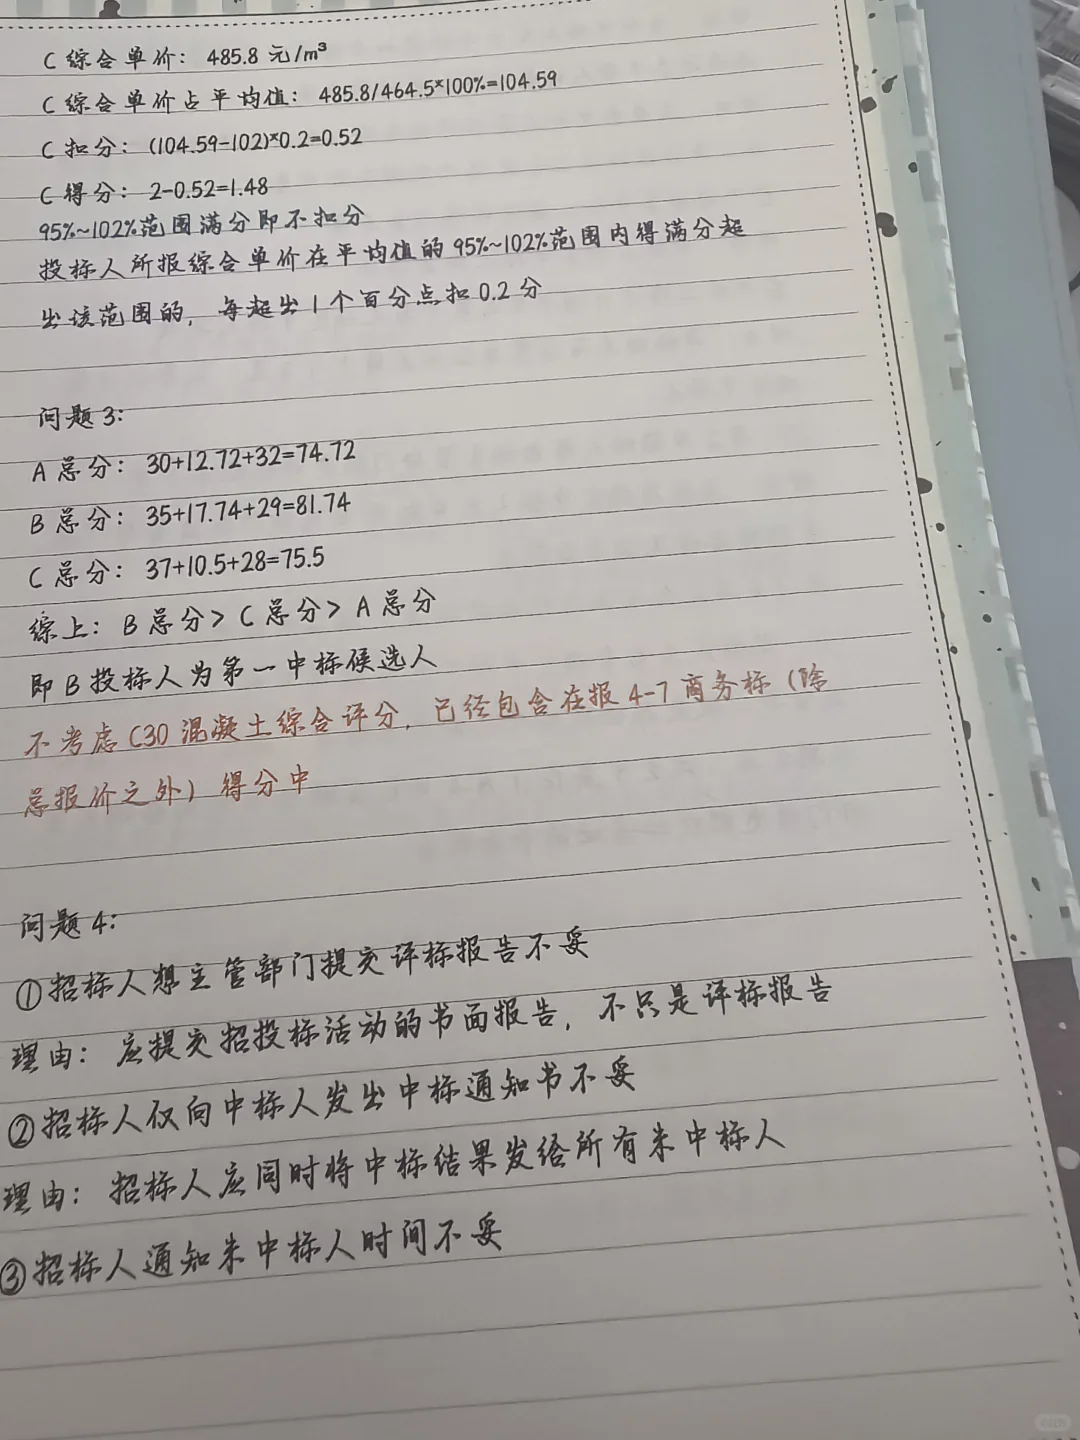 C综合单价：485.8元/m³
C综合单价占平均值：485.8/464.5*100%=104.59
C扣分：(104.59-102)*0.2=0.52
C得分：2-0.52=1.48
95%~102%范围满分即不扣分
投标人所报综合单价在平均值的95%~102%范围内得满分超
出该范围的，每超出1个百分点扣0.2分
问题3：
A总分：30+12.72+32=74.72
B总分：35+17.74+29=81.74
C总分：37+10.5+28=75.5
综上：B总分>C总分>A总分
即B投标人为第一中标候选人
不考虑C30混凝土综合评分，已经包含在报4-7商务标（除
总报价之外）得分中
问题4：
①招标人想主管部门提交评标报告不妥
理由：应提交招投标活动的书面报告，不只是评标报告
②招标人仅向中标人发出中标通知书不妥
理由：招标人应同时将中标结果发给所有未中标人
③招标人通知未中标人时间不妥